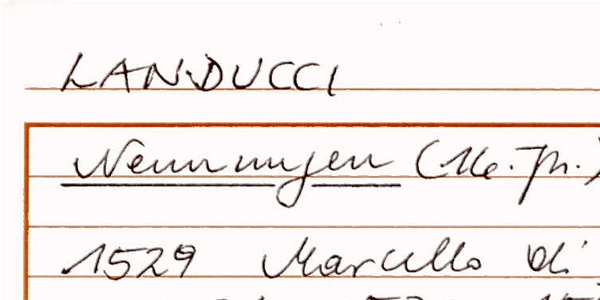 LANDUCCI
Nennungen (16. Jh.)
1529 Marcello di